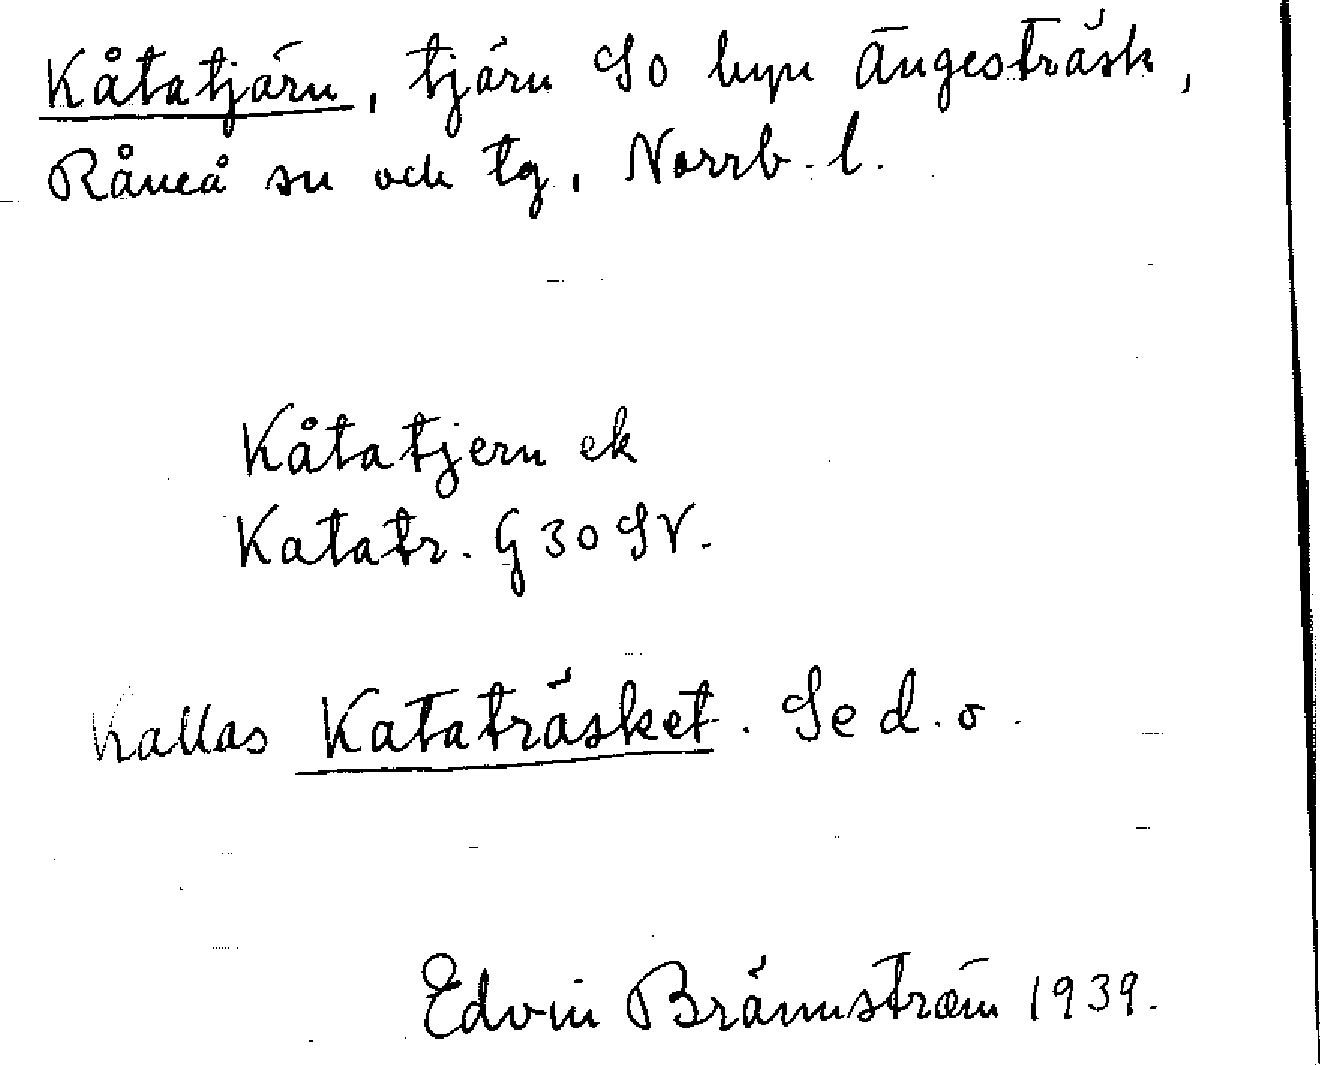 Kåtatjärn, tjärn SO byn Ängesträsk,
Råneå sn och tg, Norrb. l.
Kåtatjern ek
Katatr. G 30 SV.
Kallas Kataträsket. Se d. o.
Edvin Brännström 1939.